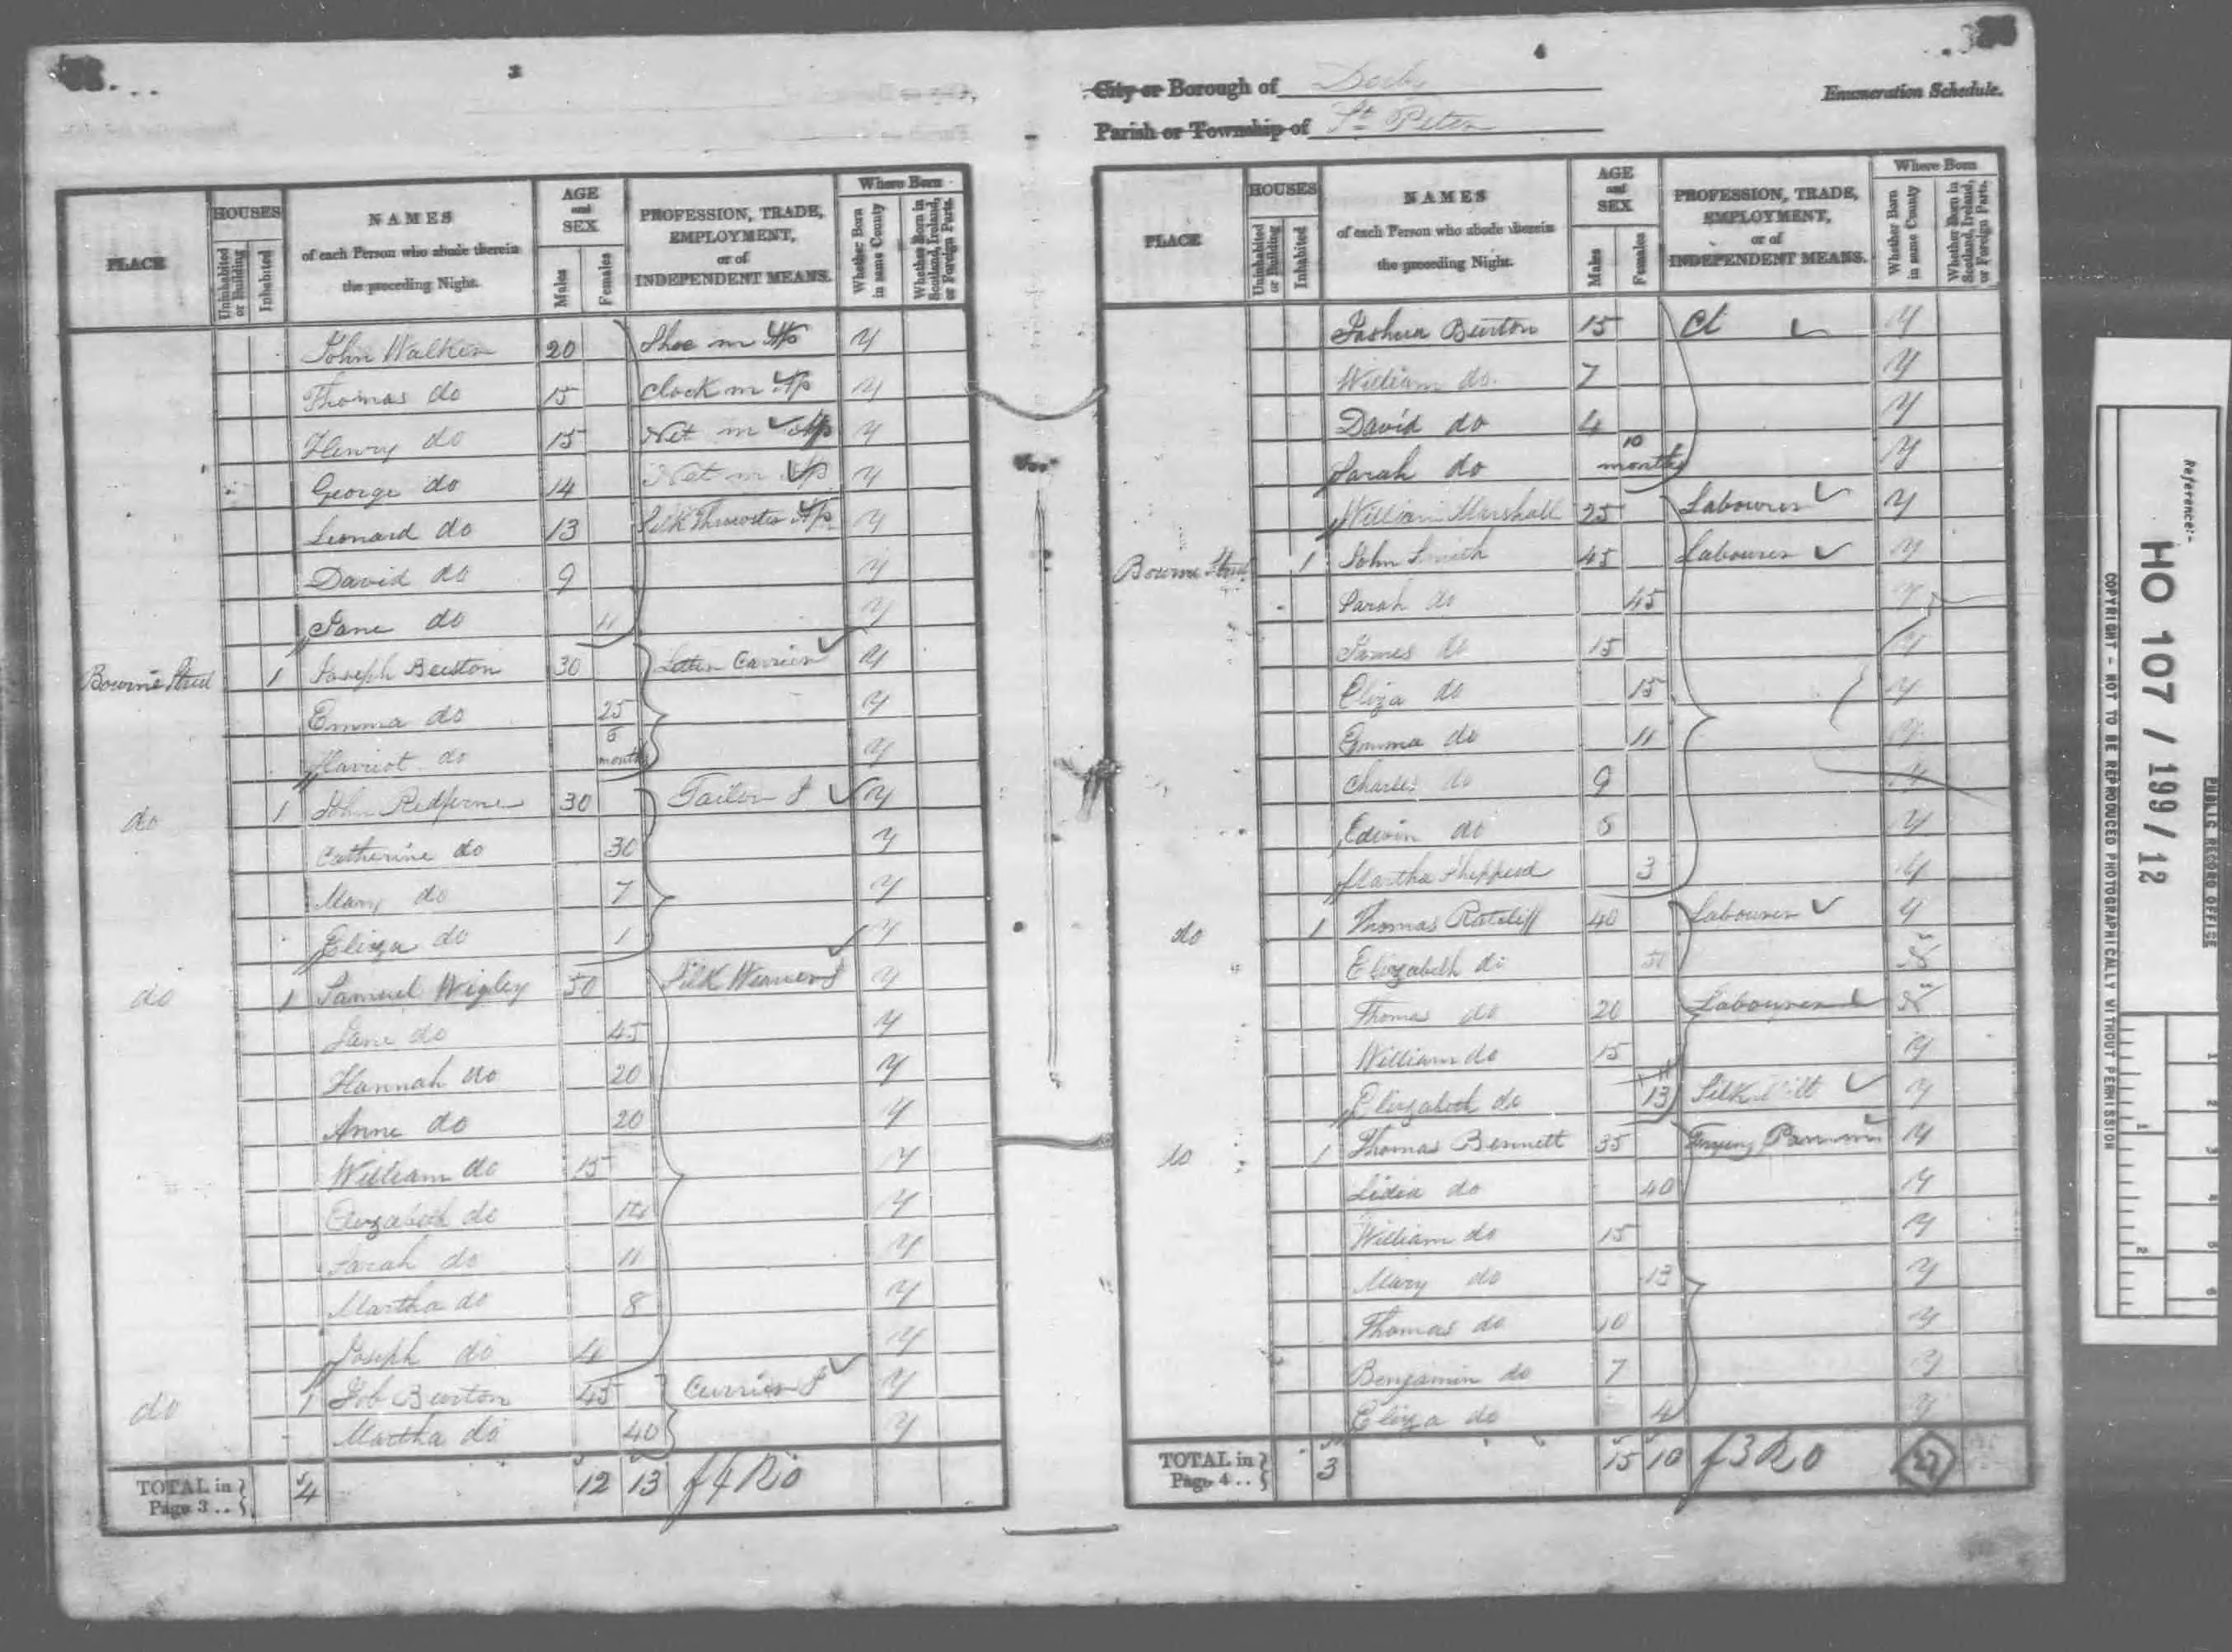 3
PLACE
HOUSES
Uninhabited or Building
Inhabited
NAMES
of each Person who abode therein
the preceding Night.
AGE
and
SEX
Males
Females
PROFESSION, TRADE,
EMPLOYMENT,
or of
INDEPENDENT MEANS.
Where Born
Whether Born in same County
Whether Born in Scotland, Ireland, or Foreign Parts.
John Walker 20 Shoe m Ap y
Thomas do 15 Clock m Ap y
Henry do 15 Net m Ap y
George do 14 Net m Ap y
Leonard do 13 Silk Throwster Ap y
David do 9 y
Jane do 11 y
Bourne Street 1 Joseph Beeston 30 Letter Carrier y
Emma do 25 y
Harriot do 6 months y
do 1 John Redferne 30 Tailor J y
Catherine do 30 y
Mary do 7 y
Eliza do 1 y
do 1 Samuel Wigley 50 Silk Weaver J y
Jane do 45 y
Hannah do 20 y
Anne do 20 y
William do 15 y
Elizabeth do y
Sarah do 11 y
Martha do 8 y
Joseph do 4 y
do 1 Job Burton 45 Currier J y
Martha do 40 y
TOTAL in Page 3 .. 4 12 13
4
City or Borough of Derby
Parish or Township of St Peter
Enumeration Schedule.
PLACE
HOUSES
Uninhabited or Building
Inhabited
NAMES
of each Person who abode therein
the preceding Night.
AGE
and
SEX
Males
Females
PROFESSION, TRADE,
EMPLOYMENT,
or of
INDEPENDENT MEANS.
Where Born
Whether Born in same County
Whether Born in Scotland, Ireland, or Foreign Parts.
Joshua Burton 15 Cl y
William do 7 y
David do 4 y
Sarah do 10 months y
William Marshall 25 Labourer y
Bourne Street 1 John Smith 45 Labourer y
Sarah do 45 y
James do 15 y
Eliza do 15 y
Emma do 11 y
Charles do 9 y
Edwin do 6 y
Martha Shepperd 3 y
do 1 Thomas Ratcliff 40 Labourer y
Elizabeth do 50
Thomas do 20 Labourer
William do 15 y
Elizabeth do 13 Silk Mill y
do 1 Thomas Bennett 35 Frying Pan m y
Lidia do 40 y
William do 15 y
Mary do 13 y
Thomas do 10 y
Benjamin do 7 y
Eliza do 4 y
TOTAL in Page 4 .. 3 15 10
PUBLIC RECORD OFFICE
Reference:-
HO 107 / 199 / 12
COPYRIGHT - NOT TO BE REPRODUCED PHOTOGRAPHICALLY WITHOUT PERMISSION
1 2 3 4 5 6
1 2